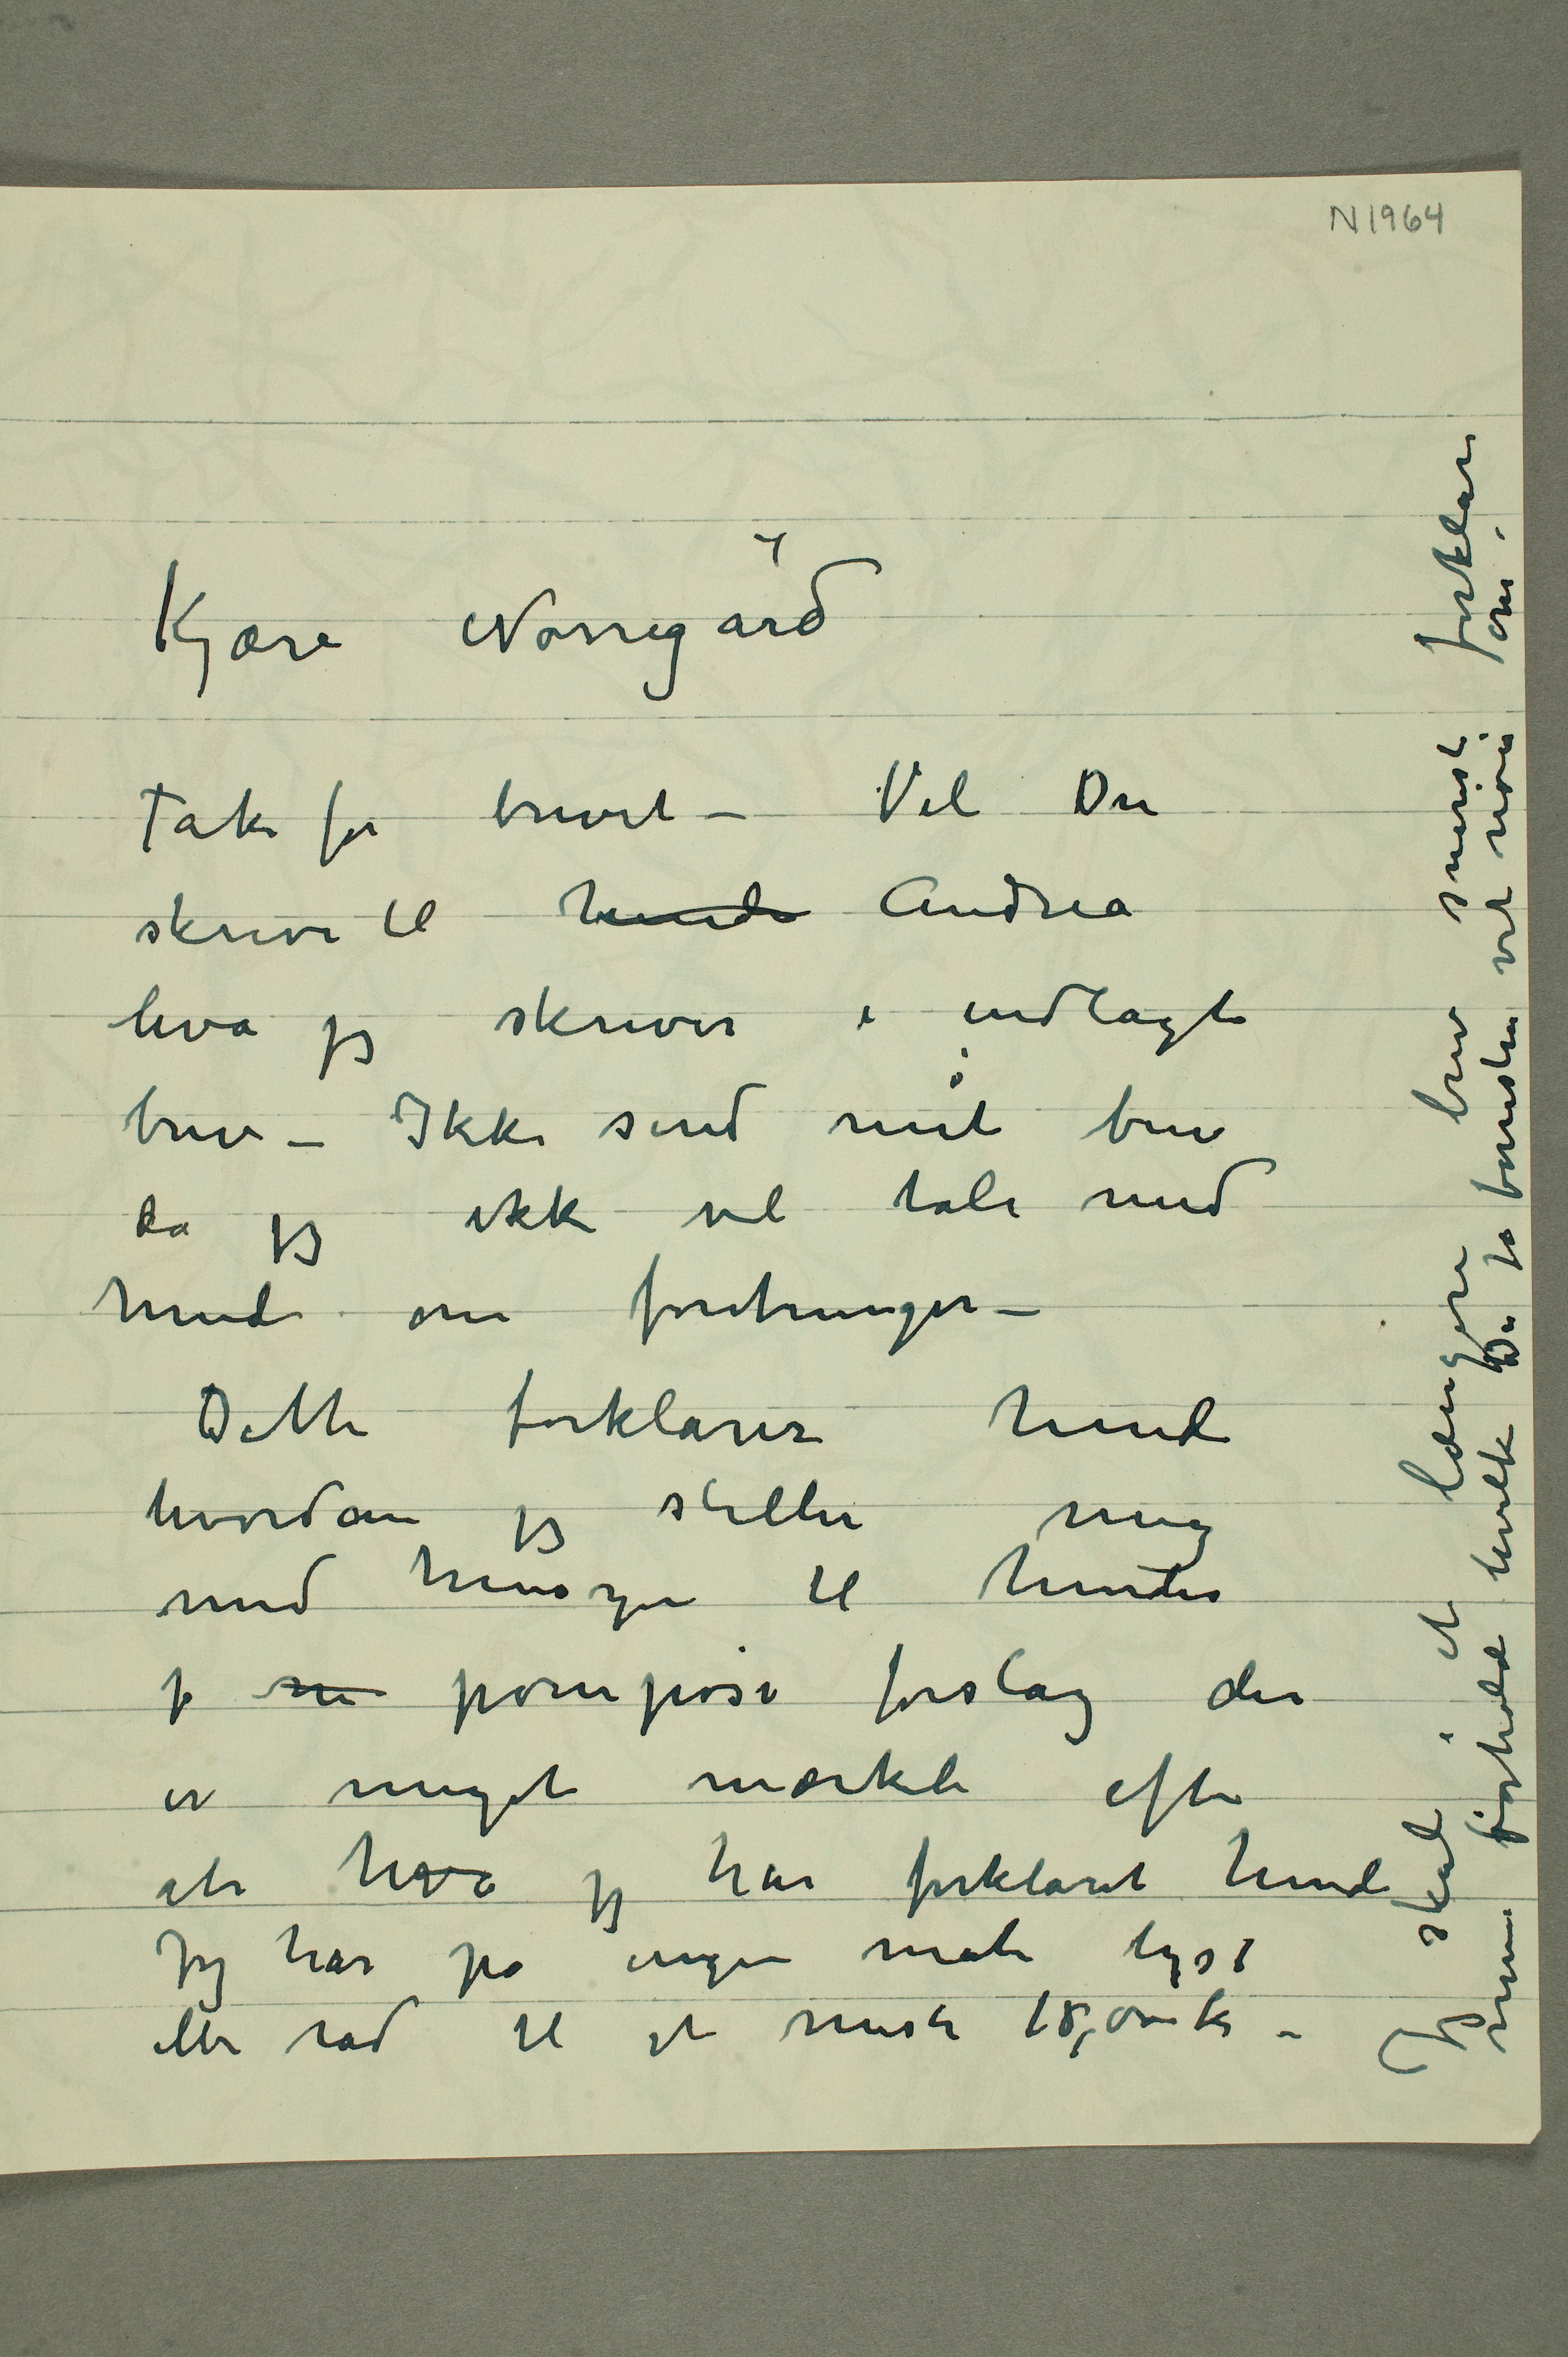 N1964
Kjære Nørregård
Tak for brevet – Vil Du
skrive til hende Andrea
hva jeg skriver i indlagte
brev – Ikke send mit brev
da jeg ikke vil tale med
hende om foretninger –
Dette forklarer hende
hvordan jeg stiller mig
med hensyn til hendes
pompøse forslag der
er meget mærkeli efter
hva jeg har forklaret hende
Jeg har på ingen måte lyst
eller råd til at miste 18,000 kr –
Jeg skal i et længere brev snarest forklare
mine forholde hvilke Du jo forresten vet noe om –